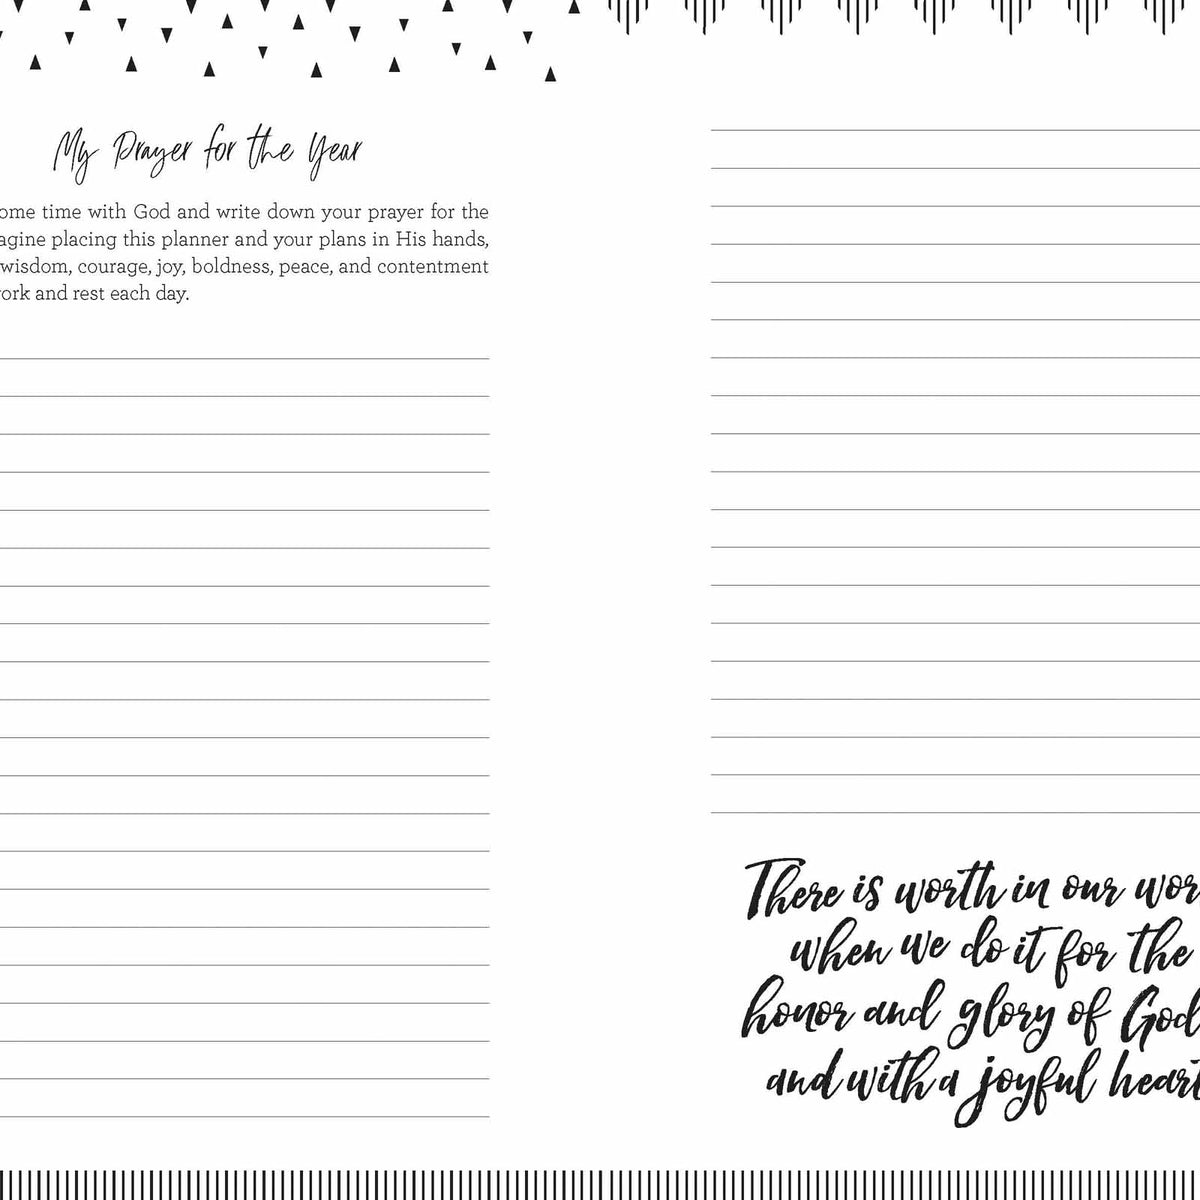 My Prayer for the Year
ome time with God and write down your prayer for the
agine placing this planner and your plans in His hands,
wisdom, courage, joy, boldness, peace, and contentment
ork and rest each day.
There is worth in our wor
when we do it for the
honor and glory of God
and with a joyful heart